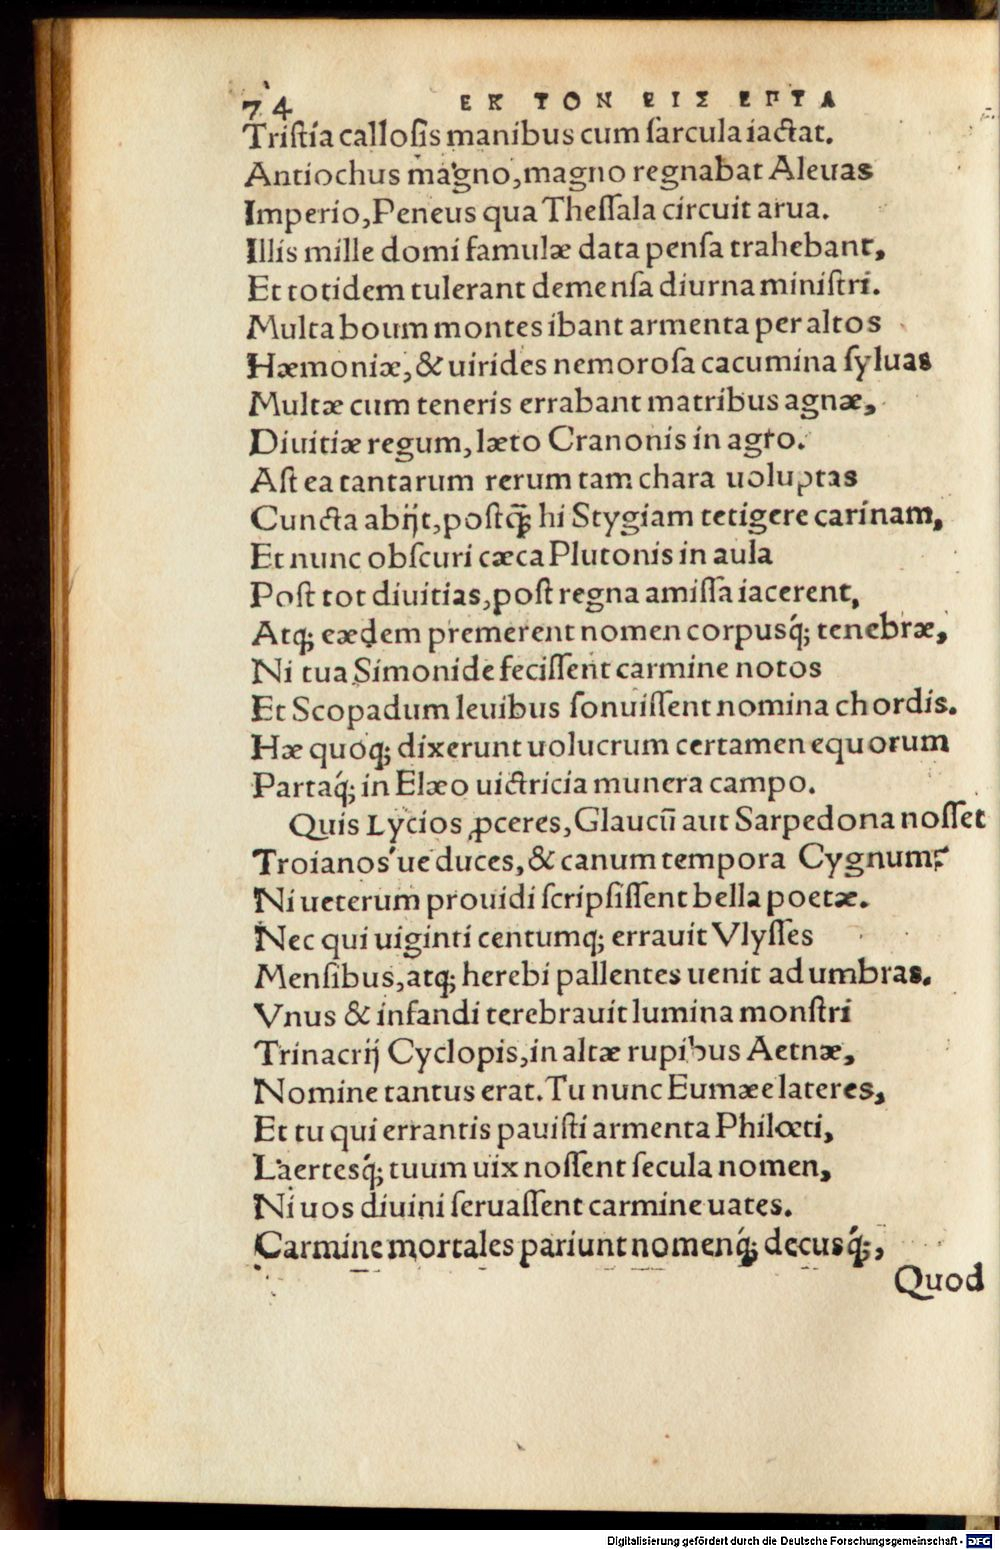 74 ΕΚ ΤΟΝ ΕΙΣ ΕΠΤΑ
Triſtía calloſis manibus cum ſarcula iactat.
Antiochus magno, magno regnabat Aleuas
Imperio, Peneus qua Theſſala circuit arua.
Illis mille domi famulæ data penſa trahebant,
Et totidem tulerant demenſa diurna miniſtri.
Multa boum montes ibant armenta per altos
Hæmoniæ, & uirides nemoroſa cacumina ſyluas
Multæ cum teneris errabant matribus agnæ,
Diuitiæ regum, læto Cranonis in agro.
Aſt ea tantarum rerum tam chara uoluptas
Cuncta abijt, poſtq̃ hi Stygiam tetigere carinam,
Et nunc obſcuri cæca Plutonis in aula
Poſt tot diuitias, poſt regna amiſſa iacerent,
Atq; eædem premerent nomen corpusq́; tenebræ,
Ni tua Simonide feciſſent carmine notos
Et Scopadum leuibus ſonuiſſent nomina chordis.
Hæ quoq; dixerunt uolucrum certamen equorum
Partaq́; in Elæo uictricia munera campo.
Quis Lycios ꝓceres, Glaucũ aut Sarpedona noſſet
Troianos ue duces, & canum tempora Cygnum?
Ni ueterum prouidi ſcripſiſſent bella poetæ.
Nec qui uiginti centumq; errauit Vlyſſes
Menſibus, atq; herebi pallentes uenit ad umbras.
Vnus & infandi terebrauit lumina monſtri
Trinacrij Cyclopis, in altæ rupibus Aetnæ,
Nomine tantus erat. Tu nunc Eumæe lateres,
Et tu qui errantis pauiſti armenta Philœti,
Laertesq́; tuum uix noſſent ſecula nomen,
Ni uos diuini ſeruaſſent carmine uates.
Carmine mortales pariunt nomenq́; decusq́;,
Quod
Digitalisierung gefördert durch die Deutsche Forschungsgemeinschaft - DFG